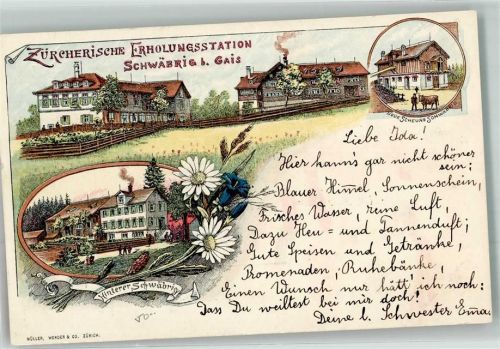 ZÜRCHERISCHE ERHOLUNGSSTATION
SCHWÄBRIG b. GAIS
NEUE SCHEUNE
Liebe Ida!
Hier kann's gar nicht schöner
sein;
Blauer Himel, Sonnenschein,
Frisches Wasser, reine Luft,
Dazu Heu= und Tannenduft;
Gute Speisen und Getränke,
Promenaden, Ruhebänke,
Einen Wunsch nur hätt ich noch:
Dass Du weiltest bei mir doch!
Deine l. Schwester Ema.
Hinterer Schwäbrig
MÜLLER, WERDER & CO. ZÜRICH.